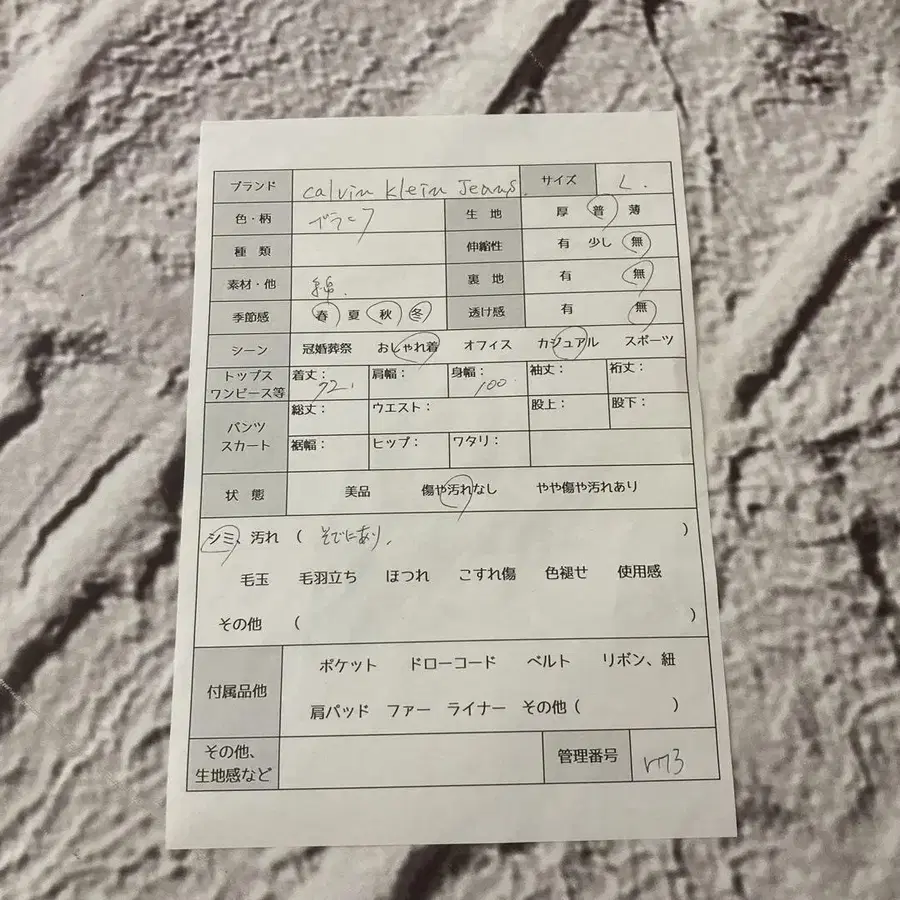 ブランド calvin klein Jeans. サイズ L.
色・柄 ブラック 生地 厚 普 薄
種類 伸縮性 有 少し 無
素材・他 綿. 裏地 有 無
季節感 春 夏 秋 冬 透け感 有 無
シーン 冠婚葬祭 おしゃれ着 オフィス カジュアル スポーツ
トップス ワンピース等 着丈: 72. 肩幅: 身幅: 100. 袖丈: 裄丈:
パンツ スカート 総丈: ウエスト: 股上: 股下:
裾幅: ヒップ: ワタリ:
状態 美品 傷や汚れなし やや傷や汚れあり
シミ、汚れ ( そでにあり. )
毛玉 毛羽立ち ほつれ こすれ傷 色褪せ 使用感
その他 ( )
付属品他 ポケット ドローコード ベルト リボン、紐
肩パッド ファー ライナー その他 ( )
その他、
生地感など 管理番号